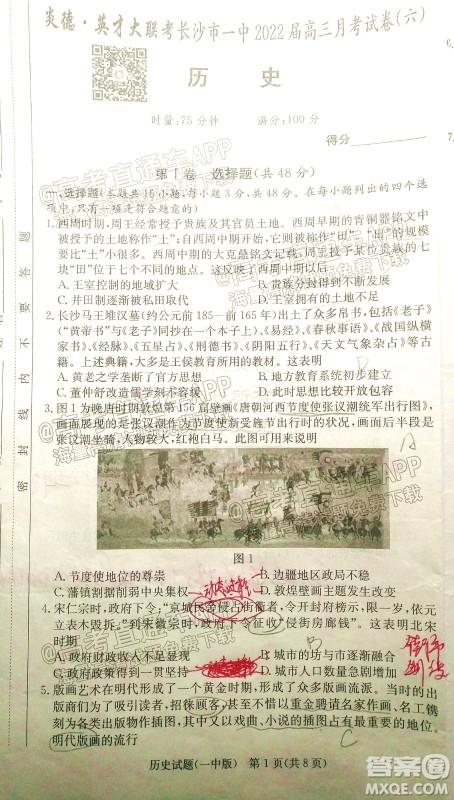 炎德·英才大联考长沙市一中2022届高三月考试卷(六)
历 史
时量:75分钟 满分:100分
得分
第Ⅰ卷 选择题(共48分)
一、选择题(本题共16小题,每小题3分,共48分。在每小题列出的四个选
项中,只有一项是符合题意的)
1.西周时期,周王经常授予贵族及其官员土地。西周早期的青铜器铭文中
授予的土地称作“土”;自西周中期开始,它们被称作“田”。“田”的规模
要比“土”小很多。西周中期的大克鼎铭文记载,周王授予某位贵族的七
块“田”位于七个不同的地点。这反映了西周中后期
A.王室控制的地域扩大 B.贵族分封的不断发展
C.井田制逐渐被私田取代 D.王室拥有的土地不足
2.长沙马王堆汉墓(约公元前185—前165年)出土了众多帛书,包括《老子》
(“黄帝书”与《老子》同抄在一个本子上)、《易经》、《春秋事语》、《战国纵横
家书》、《老子》、《五星占》、《刑德书》、《阴阳五行》、《天文气象杂占》等古
籍。上述典籍,大多是王侯教育所用的教材。这表明
A.黄老之学垄断了官方思想 B.地方教育系统初步建立
C.董仲舒改造儒学刻不容缓 D.此时思想比较开放包容
3.图1为晚唐时期敦煌第156窟壁画《唐朝河西节度使张议潮统军出行图》,
画面展现的是张议潮作为节度使新受旌节出行时的状况,画面后半段是
张议潮坐骑,人物较大,红袍白马。此图可用来说明
A
图1
A.节度使地位的尊崇 B.边疆地区政局不稳
C.藩镇割据削弱中央集权 D.敦煌壁画主题发生改变
4.宋仁宗时,政府下令,“京城民舍侵占街衢者,令开封府榜示,限一岁,依元
立表木毁拆”,到宋徽宗时,政府下令征收“侵街房廊钱”。这表明北宋
时期
B
A.政府财政收入不足显现 B.城市的坊与市逐渐融合
C.政府政策得到一贯坚持 D.城市人口数量急剧增加
5.版画艺术在明代形成了一个黄金时期,形成了众多版画流派。当时的出
版商们为了吸引读者,招徕顾客,甚至不惜以重金聘请名家作画、名工镌
刻为各类出版物作插图,其中,以戏曲、小说的插图占有最重要的地位。
明代版画的流行
C
历史试题(一中版) 第1页(共8页)
密 封 线 内 不 要 答 题
6.
7.
答案圈
MXQE.COM